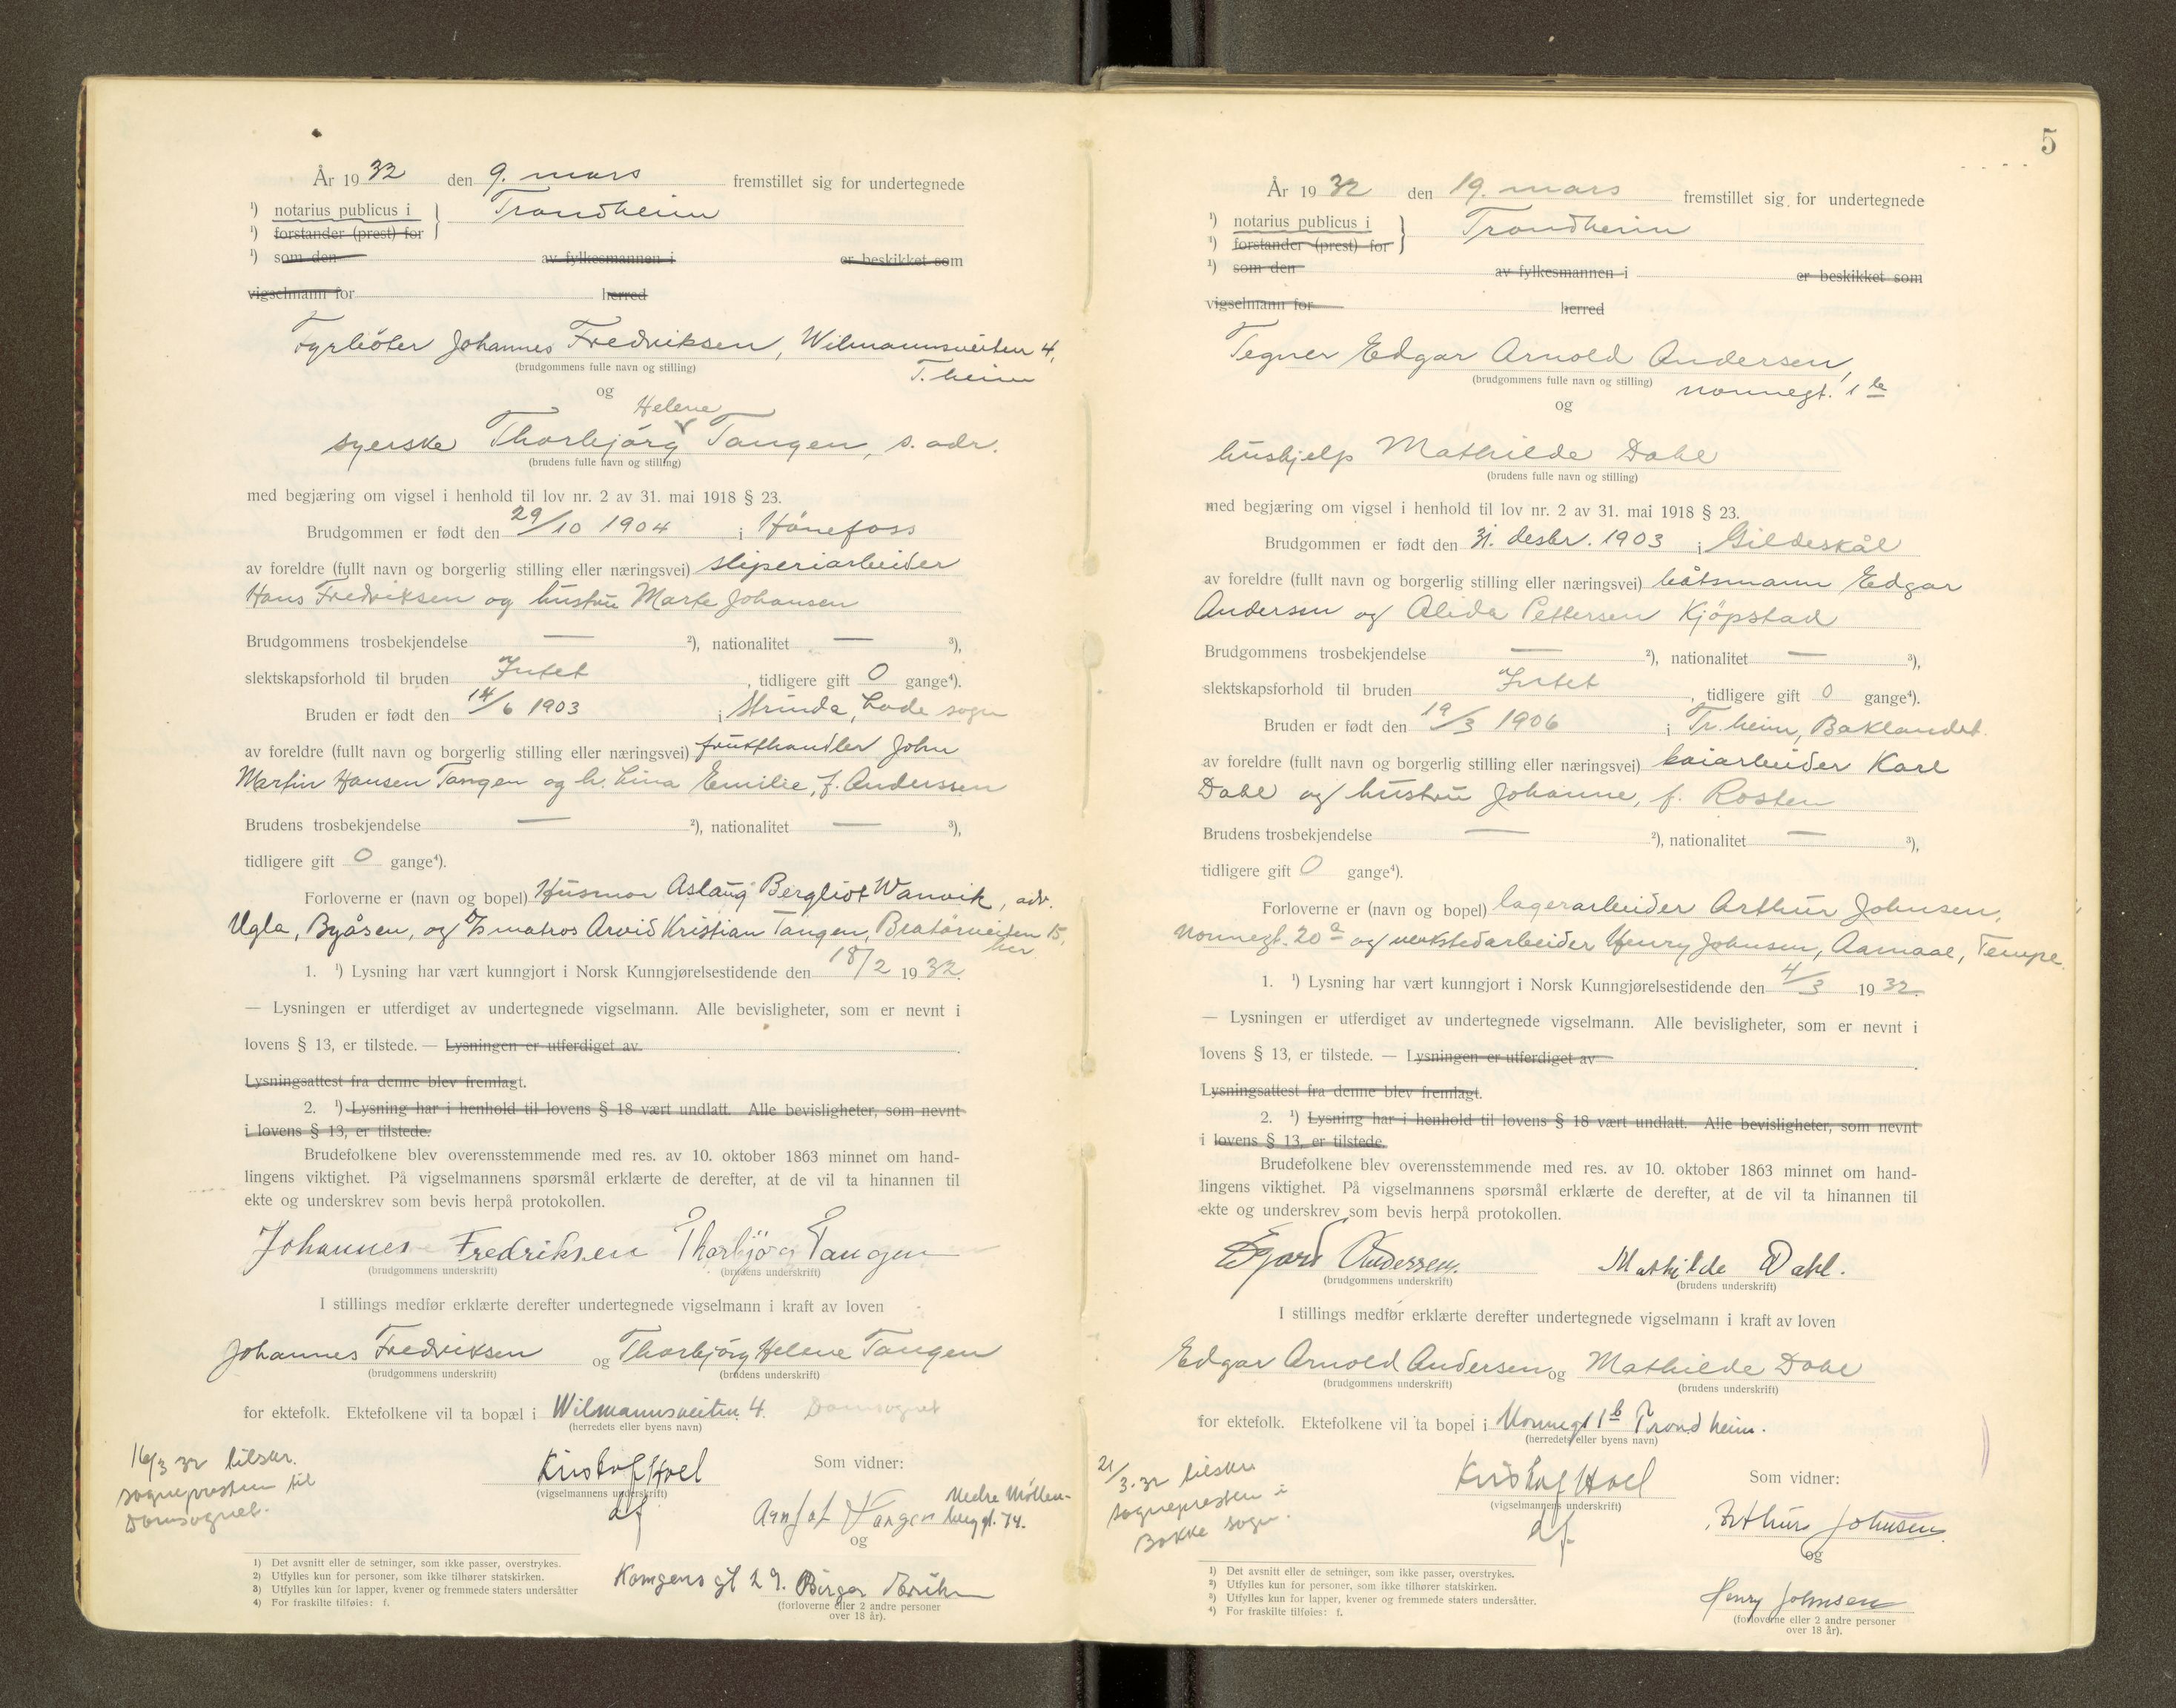 År 1932 den 9. mars fremstillet sig for undertegnede
1) notarius publicus i } Trondheim
1) forstander (prest) for
1) som den av fylkesmannen i er beskikket som
vigselmann for herred
Fyrböter Johannes Fredriksen, Wilmannsveiten 4,
(brudgommens fulle navn og stilling) T.heim
og
Helene
syerske Thorbjörg Tangen, s. adr.
(brudens fulle navn og stilling)
med begjæring om vigsel i henhold til lov nr. 2 av 31. mai 1918 § 23.
Brudgommen er født den 29/10 1904 i Hönefoss
av foreldre (fullt navn og borgerlig stilling eller næringsvei) sliperiarbeider
Hans Fredriksen og hustru Marte Johansen
Brudgommens trosbekjendelse — 2), nationalitet — 3),
slektskapsforhold til bruden Intet, tidligere gift 0 gange4).
Bruden er født den 14/6 1903 i Strinda, Lade sogn
av foreldre (fullt navn og borgerlig stilling eller næringsvei) frukthandler John
Martin Hansen Tangen og h. Lina Emilie, f. Anderssen
Brudens trosbekjendelse — 2), nationalitet — 3),
tidligere gift 0 gange4).
Forloverne er (navn og bopel) Husmor Aslaug Bergliot Wanvik, adr.
Ugla, Byåsen, og matros Arvid Kristian Tangen, Bratörveiten 15,
her
1. 1) Lysning har vært kunngjort i Norsk Kunngjørelsestidende den 18/2 1932.
— Lysningen er utferdiget av undertegnede vigselmann. Alle bevisligheter, som er nevnt i
lovens § 13, er tilstede. — Lysningen er utferdiget av .
Lysningsattest fra denne blev fremlagt.
2. 1) Lysning har i henhold til lovens § 18 vært undlatt. Alle bevisligheter, som nevnt
i lovens § 13, er tilstede.
Brudefolkene blev overensstemmende med res. av 10. oktober 1863 minnet om hand-
lingens viktighet. På vigselmannens spørsmål erklærte de derefter, at de vil ta hinannen til
ekte og underskrev som bevis herpå protokollen.
Johannes Fredriksen Thorbjörg Tangen
(brudgommens underskrift) (brudens underskrift)
I stillings medfør erklærte derefter undertegnede vigselmann i kraft av loven
Johannes Fredriksen og Thorbjörg Helene Tangen
(brudgommens underskrift) (brudens underskrift)
for ektefolk. Ektefolkene vil ta bopæl i Wilmannsveiten 4. Domsognet
(herredets eller byens navn)
16/3 32 tilskr.
sognepresten til
Domsognet.
Kristof Hoel
(vigselmannens underskrift)
df
Som vidner:
Arnjot Tangen Nedre Möllen-
berg gt. 74.
og
Kongens gt 29. Birger
(forloverne eller 2 andre personer
over 18 år).
1) Det avsnitt eller de setninger, som ikke passer, overstrykes.
2) Utfylles kun for personer, som ikke tilhører statskirken.
3) Utfylles kun for lapper, kvener og fremmede staters undersåtter
4) For fraskilte tilføies: f.
5
År 1932 den 19. mars fremstillet sig for undertegnede
1) notarius publicus i } Trondheim
1) forstander (prest) for
1) som den av fylkesmannen i er beskikket som
vigselmann for herred
Tegner Edgar Arnold Andersen,
(brudgommens fulle navn og stilling) Nonnegt. 1b
og
hushjelp Mathilde Dahl
(brudens fulle navn og stilling)
med begjæring om vigsel i henhold til lov nr. 2 av 31. mai 1918 § 23.
Brudgommen er født den 31. desbr. 1903 i Gildeskål
av foreldre (fullt navn og borgerlig stilling eller næringsvei) båtsmann Edgar
Andersen og Alida Pettersen Kjöpstad
Brudgommens trosbekjendelse — 2), nationalitet — 3),
slektskapsforhold til bruden Intet, tidligere gift 0 gange4).
Bruden er født den 19/3 1906 i Tr.heim, Baklandet.
av foreldre (fullt navn og borgerlig stilling eller næringsvei) kaiarbeider Karl
Dahl og hustru Johanne, f. Rosten
Brudens trosbekjendelse — 2), nationalitet — 3),
tidligere gift 0 gange4).
Forloverne er (navn og bopel) lagerarbeider Arthur Johnsen,
Nonnegt. 20a og verkstedarbeider Henry Johnsen, Aamaal, Tempe.
1. 1) Lysning har vært kunngjort i Norsk Kunngjørelsestidende den 4/3 1932.
— Lysningen er utferdiget av undertegnede vigselmann. Alle bevisligheter, som er nevnt i
lovens § 13, er tilstede. — Lysningen er utferdiget av .
Lysningsattest fra denne blev fremlagt.
2. 1) Lysning har i henhold til lovens § 18 vært undlatt. Alle bevisligheter, som nevnt
i lovens § 13, er tilstede.
Brudefolkene blev overensstemmende med res. av 10. oktober 1863 minnet om hand-
lingens viktighet. På vigselmannens spørsmål erklærte de derefter, at de vil ta hinannen til
ekte og underskrev som bevis herpå protokollen.
Andersen. Mathilde Dahl.
(brudgommens underskrift) (brudens underskrift)
I stillings medfør erklærte derefter undertegnede vigselmann i kraft av loven
Edgar Arnold Andersen og Mathilde Dahl
(brudgommens underskrift) (brudens underskrift)
for ektefolk. Ektefolkene vil ta bopel i Nonnegt 1b Trondheim.
(herredets eller byens navn)
21/3.32 tilskr.
sognepresten i
Bakke sogn.
Kristof Hoel
(vigselmannens underskrift)
df.
Som vidner:
Arthur Johnsen
og
Henry Johnsen
(forloverne eller 2 andre personer
over 18 år).
1) Det avsnitt eller de setninger, som ikke passer, overstrykes.
2) Utfylles kun for personer, som ikke tilhører statskirken.
3) Utfylles kun for lapper, kvener og fremmede staters undersåtter.
4) For fraskilte tilføies: f.